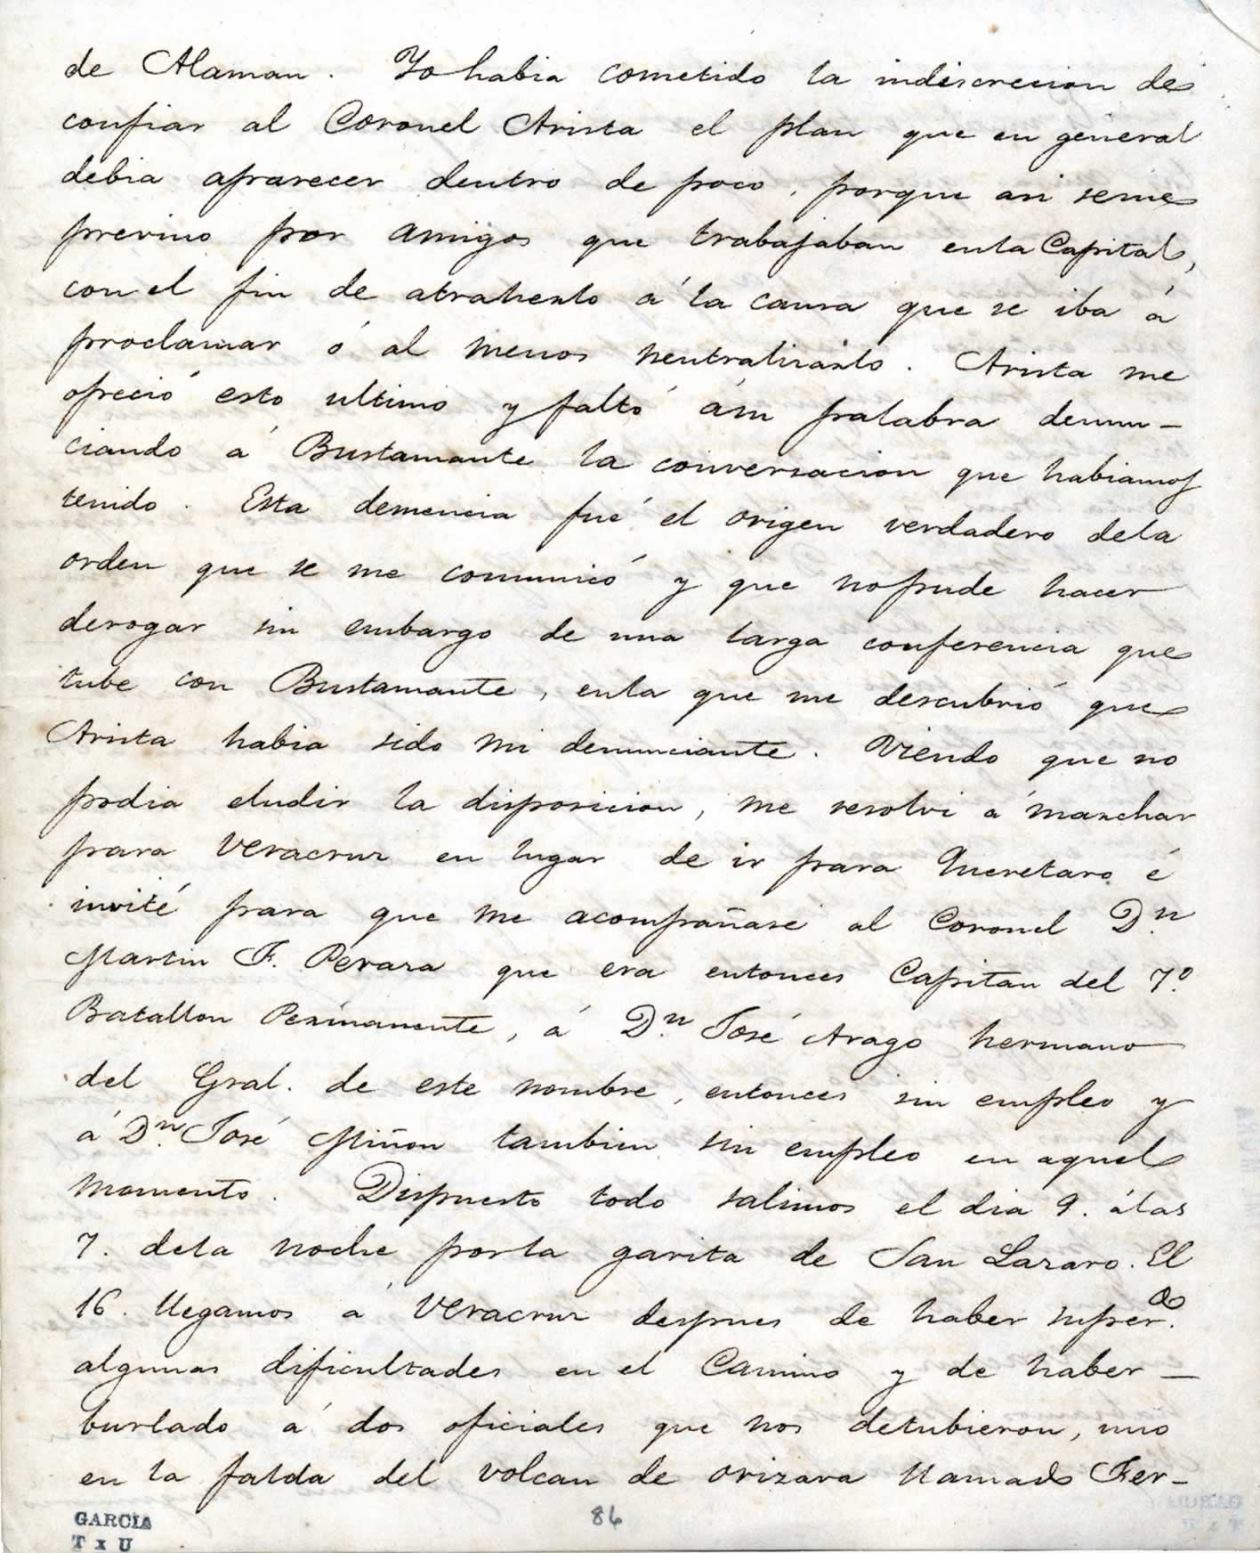 de Alaman. Yo habia cometido la indiscrecion de
confiar al Coronel Arista el plan que en general
debia aparecer dentro de poco, porque asi seme
previno por amigos que trabajaban enla Capital,
con el fin de atraherlo á la causa que se iba á
proclamar ó al menos neutralizarlo. Arista me
ofreció esto ultimo y faltó ám palabra denun-
ciando á Bustamante la conversacion que habiamos
tenido. Esta denuncia fué el origen verdadero dela
orden que se me comunicó y que nopude hacer
derogar sin embargo de una larga conferencia que
tube con Bustamante, enla que me descubrió que
Arista habia sido mi denunciante. Viendo que no
podia eludir la disposicion, me resolvi á marchar
para Veracruz en lugar de ir para Queretaro é
invité para que me acompañase al Coronel D.n
Martin F. Peraza que era entonces Capitan del 7.o
Batallon Permanente, á D.n José Arago hermano
del Gral. de este nombre, entonces sin empleo y
á D.n José Miñon tambien sin empleo en aquel
momento. Dispuesto todo salimos el dia 9. álas
7. dela noche porla garita de San Lazaro. El
16. llegamos á Veracruz despues de haber super.do
algunas dificultades en el Camino y de haber -
burlado á dos oficiales que nos detubieron, uno
en la falda del volcan de orizava llamado Fer-
GARCIA
86
T x U